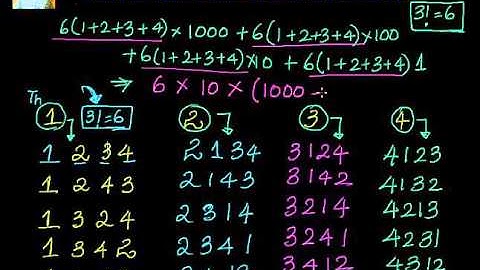 6(1+2+3+4)×1000 + 6(1+2+3+4)×100
3!=6
+6(1+2+3+4)×10 + 6(1+2+3+4)1
⇒ 6 × 10 × (1000 -
Th
1 3!=6 2 3 4
1 2 3 4 2 1 3 4 3 1 2 4 4 1 2 3
1 2 4 3 2 1 4 3 3 1 4 2 4 1 3 2
1 3 2 4 2 3 1 4 3 2 1 4 4 2 1 3
1 3 4 2 2 3 4 1 3 2 4 1 4 2 3 1
3 4 1 2 4 3 1 2